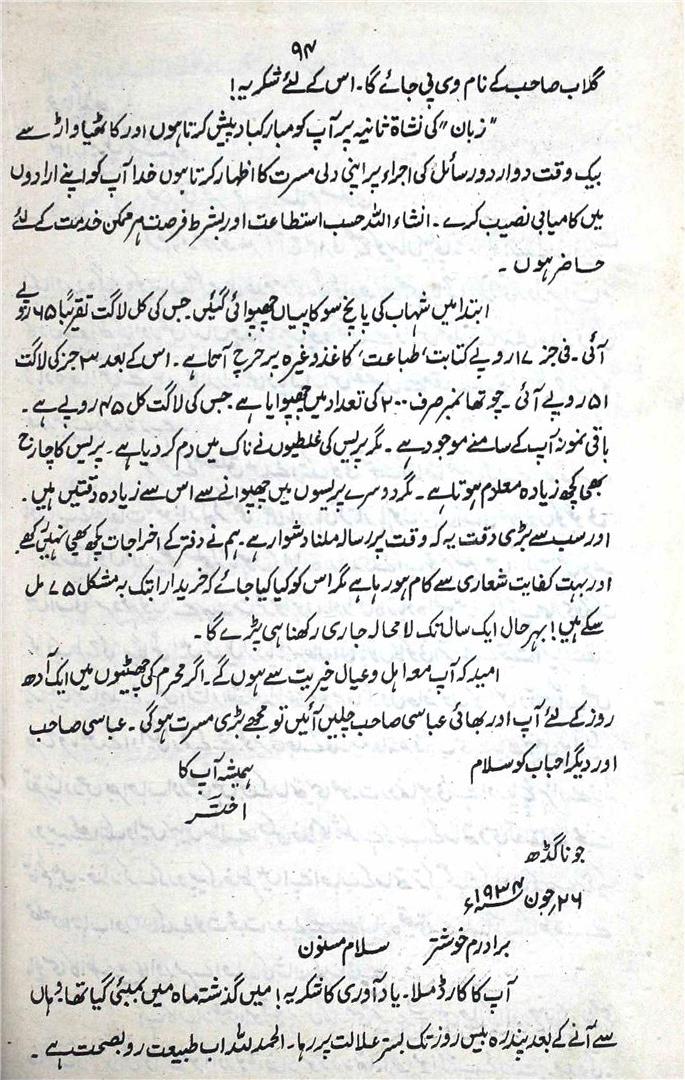 ۹۴
گلاب صاحب کے نام وی پی جائے گا۔ اس کے لئے شکریہ!
"زبان" کی نشاۃ ثانیہ پر آپ کو مبارکباد پیش کرتا ہوں اور کاٹھیاواڑ سے
بیک وقت دو اردو رسائل کی اجراء پر اپنی دلی مسرت کا اظہار کرتا ہوں خدا آپ کو اپنے ارادوں
میں کامیابی نصیب کرے۔ انشاء اللہ حسب استطاعت اور بشرط فرصت ہر ممکن خدمت کے لئے
حاضر ہوں۔
ابتدا میں شہاب کی پانچ سو کاپیاں چھپوائی گئیں۔ جس کی کل لاگت تقریباً ۶۵ روپے
آئی۔ فی جز ۱۷ روپے کتابت' طباعت' کاغذ وغیرہ پر خرچ آتا ہے۔ اس کے بعد ۳ جز کی لاگت
۵۱ روپے آئی۔ چوتھا نمبر صرف ۲۰۰ کی تعداد میں چھپوایا ہے جس کی لاگت کل ۴۵ روپے ہے۔
باقی نمونہ آپ کے سامنے موجود ہے۔ مگر پریس کی غلطیوں نے ناک میں دم کر دیا ہے۔ پریس کا چارج
بھی کچھ زیادہ معلوم ہوتا ہے۔ مگر دوسرے پریسوں میں چھپوانے سے اس سے زیادہ دقتیں ہیں۔
اور سب سے بڑی دقت یہ کہ وقت پر رسالہ ملنا دشوار ہے۔ ہم نے دفتر کے اخراجات کچھ بھی نہیں رکھے
اور بہت کفایت شعاری سے کام ہو رہا ہے مگر اس کو کیا کیا جائے کہ خریدار ابتک بہ مشکل ۷۵ مل
سکے ہیں! بہر حال ایک سال تک لا محالہ جاری رکھنا ہی پڑے گا۔
امید کہ آپ معہ اہل و عیال خیریت سے ہوں گے۔ اگر محرم کی چھٹیوں میں ایک آدھ
روز کے لئے آپ اور بھائی عباسی صاحب چلیں آئیں تو مجھے بڑی مسرت ہوگی۔ عباسی صاحب
اور دیگر احباب کو سلام
ہمیشہ آپ کا
اختر
جوناگڈھ
۲۶؍جون ۱۹۳۴ء
برادرم خوشتر سلام مسنون
آپ کا کارڈ ملا۔ یاد آوری کا شکریہ! میں گذشتہ ماہ میں بمبئی گیا تھا، وہاں
سے آنے کے بعد پندرہ بیس روز تک بستر علالت پر رہا۔ الحمد للہ اب طبیعت رو بصحت ہے۔